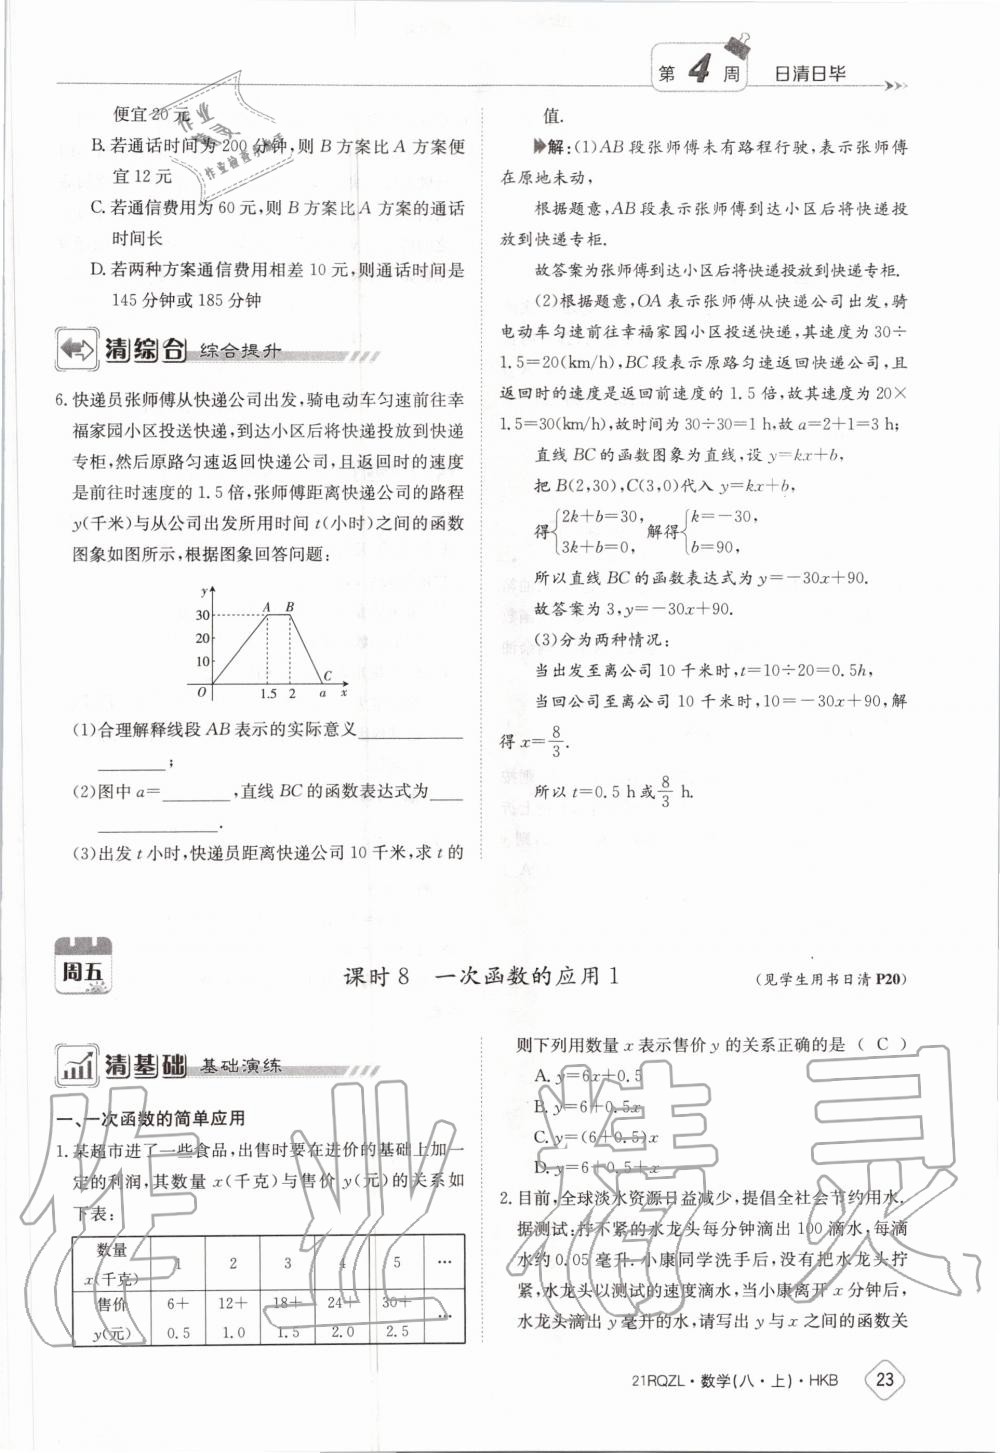 第4周 日清日毕
便宜20元
B. 若通话时间为200分钟,则B方案比A方案便
宜12元
C. 若通信费用为60元,则B方案比A方案的通话
时间长
D. 若两种方案通信费用相差10元,则通话时间是
145分钟或185分钟
清综合 综合提升
6. 快递员张师傅从快递公司出发,骑电动车匀速前往幸
福家园小区投送快递,到达小区后将快递投放到快递
专柜,然后原路匀速返回快递公司,且返回时的速度
是前往时速度的1.5倍,张师傅距离快递公司的路程
y(千米)与从公司出发所用时间t(小时)之间的函数
图象如图所示,根据图象回答问题:
y
A B
30
20
10
C
O 1.5 2 a x
(1)合理解释线段AB表示的实际意义__________
______;
(2)图中a=______,直线BC的函数表达式为___
__________.
(3)出发t小时,快递员距离快递公司10千米,求t的
值.
解:(1)AB段张师傅未有路程行驶,表示张师傅
在原地未动,
根据题意,AB段表示张师傅到达小区后将快递投
放到快递专柜.
故答案为张师傅到达小区后将快递投放到快递专柜.
(2)根据题意,OA表示张师傅从快递公司出发,骑
电动车匀速前往幸福家园小区投送快递,其速度为30÷
1.5=20(km/h),BC段表示原路匀速返回快递公司,且
返回时的速度是返回前速度的1.5倍,故其速度为20×
1.5=30(km/h),故时间为30÷30=1 h,故a=2+1=3 h;
直线BC的函数图象为直线,设y=kx+b,
把B(2,30),C(3,0)代入y=kx+b,
得{2k+b=30, 3k+b=0, 解得{k=-30, b=90,
所以直线BC的函数表达式为y=-30x+90.
故答案为3,y=-30x+90.
(3)分为两种情况:
当出发至离公司10千米时,t=10÷20=0.5h,
当回公司至离公司10千米时,10=-30x+90,解
得x=8/3.
所以t=0.5 h或8/3 h.
周五
课时8 一次函数的应用1
(见学生用书日清P20)
清基础 基础演练
一、一次函数的简单应用
1. 某超市进了一些食品,出售时要在进价的基础上加一
定的利润,其数量x(千克)与售价y(元)的关系如
下表:
数量 x(千克) 1 2 3 4 5 …
售价 y(元) 6+0.5 12+1.0 18+1.5 24+2.0 30+2.5 …
则下列用数量x表示售价y的关系正确的是( C )
A. y=6x+0.5
B. y=6+0.5x
C. y=(6+0.5)x
D. y=6+0.5+x
2. 目前,全球淡水资源日益减少,提倡全社会节约用水.
据测试:拧不紧的水龙头每分钟滴出100滴水,每滴
水约0.05毫升.小康同学洗手后,没有把水龙头拧
紧,水龙头以测试的速度滴水,当小康离开x分钟后,
水龙头滴出y毫升的水,请写出y与x之间的函数关
21RQZL·数学(八·上)·HKB 23
作业精灵